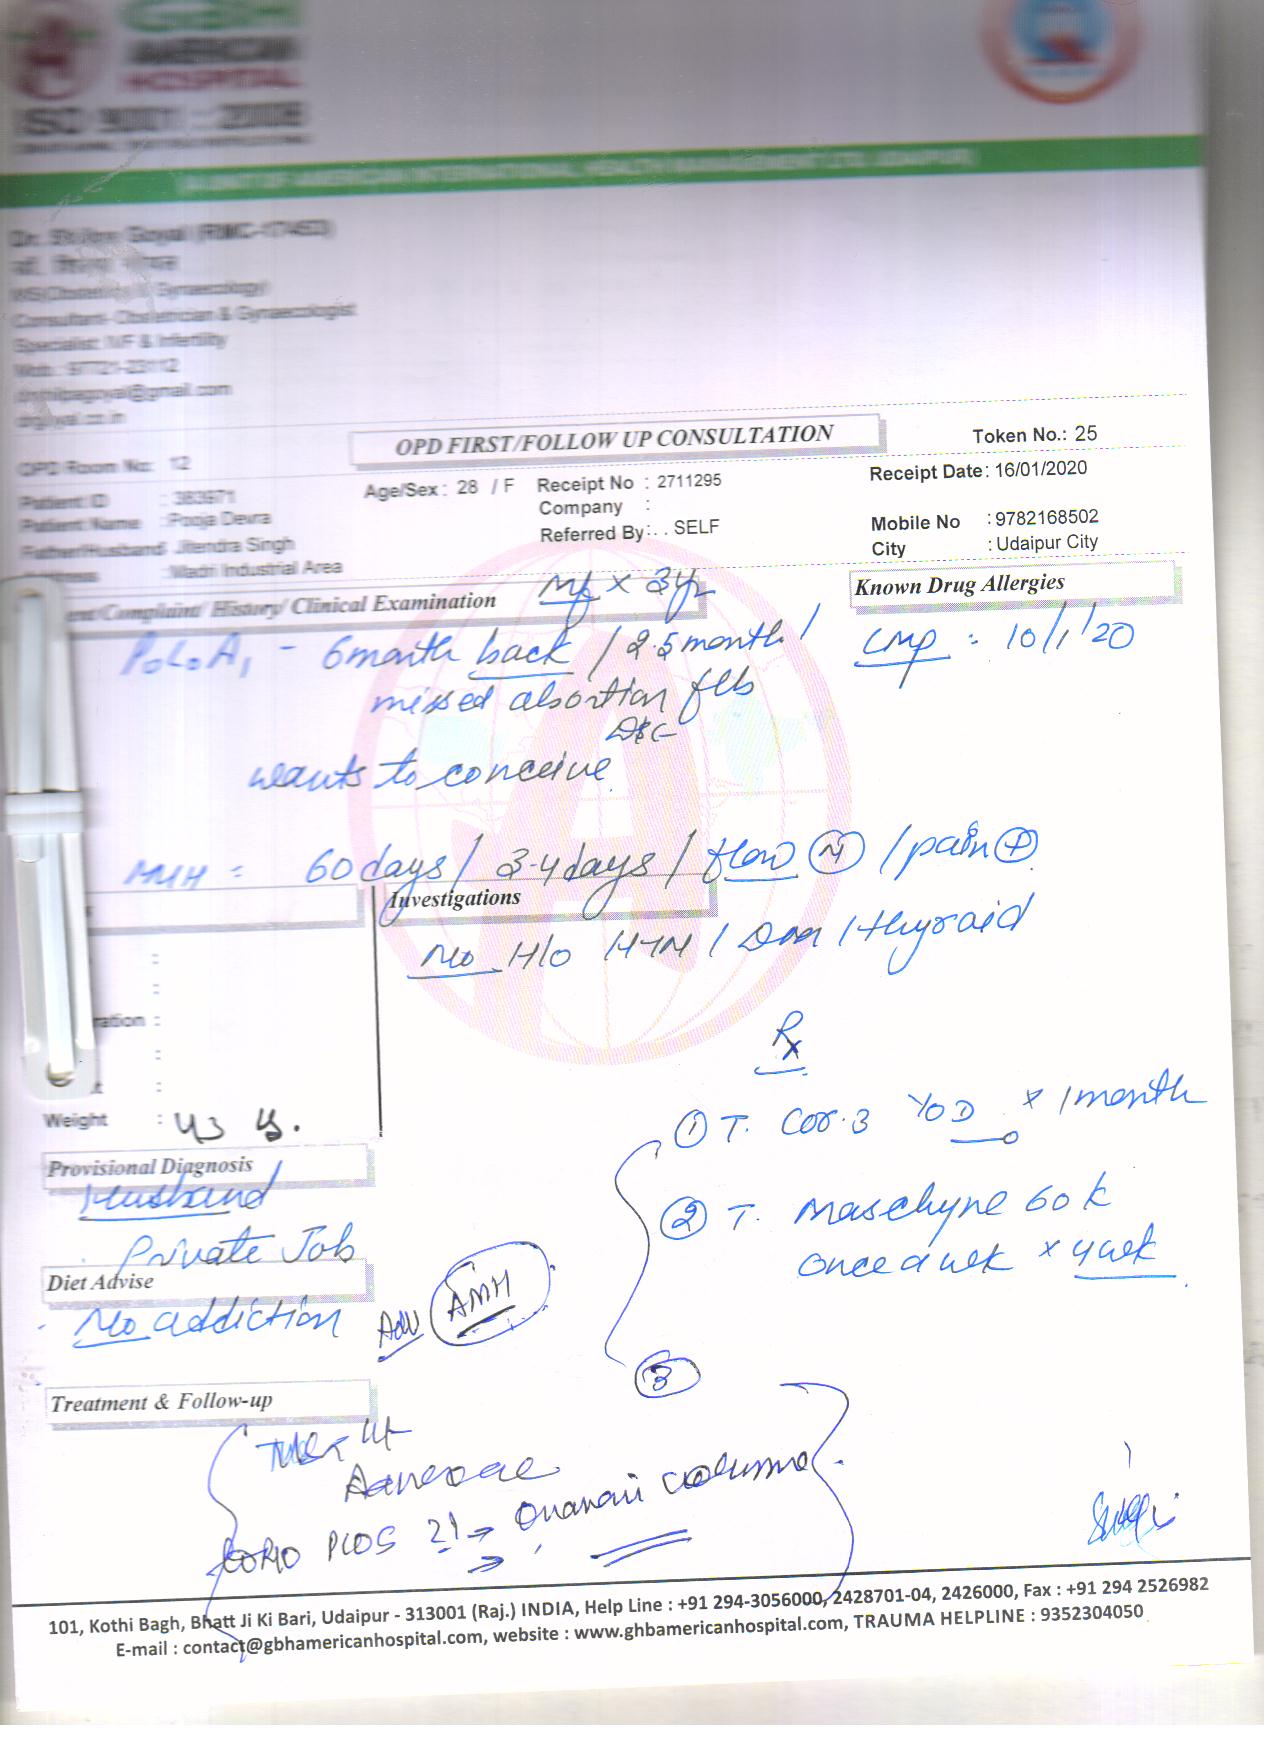 GBH
AMERICAN
HOSPITAL
ISO 9001 : 2008
(A UNIT OF AMERICAN INTERNATIONAL HEALTH MANAGEMENT LTD. UDAIPUR)
Goyal (RMC-17453)
MS(Obstetrics & Gynaecology)
Consultant- Obstetrician & Gynaecologist
Specialist IVF & Infertility
Mob.: 97721-23112
OPD FIRST/FOLLOW UP CONSULTATION
Token No.: 25
OPD Room No: 12
Receipt Date: 16/01/2020
Patient ID : 383971
Age/Sex : 28 / F
Receipt No : 2711295
Patient Name : Pooja Devra
Company :
Mobile No : 9782168502
Father/Husband Jitendra Singh
Referred By: . . SELF
City : Udaipur City
: Madri Industrial Area
ent/Complaint/ History/ Clinical Examination
Known Drug Allergies
P0L0A1 - 6 month back / 2.5 month /
LMP : 10/1/20
missed abortion f/b
D&C
wants to conceive
MH = 60 days / 3-4 days / flow (N) / pain (+)
Investigations
No H/o HTN / DM / thyroid
ration :
Rx
Weight : 43 kg.
① T. Cor-3 OD x 1 month
Provisional Diagnosis
Husband
② T. 60 k
once a wk x 4 wk
Private Job
Diet Advise
No addiction
Adv AMH
③
Treatment & Follow-up
Adnexae
PCOS ?! → Ovarian volume
101, Kothi Bagh, Bhatt Ji Ki Bari, Udaipur - 313001 (Raj.) INDIA, Help Line : +91 294-3056000, 2428701-04, 2426000, Fax : +91 294 2526982
E-mail : contact@gbhamericanhospital.com, website : www.ghbamericanhospital.com, TRAUMA HELPLINE : 9352304050